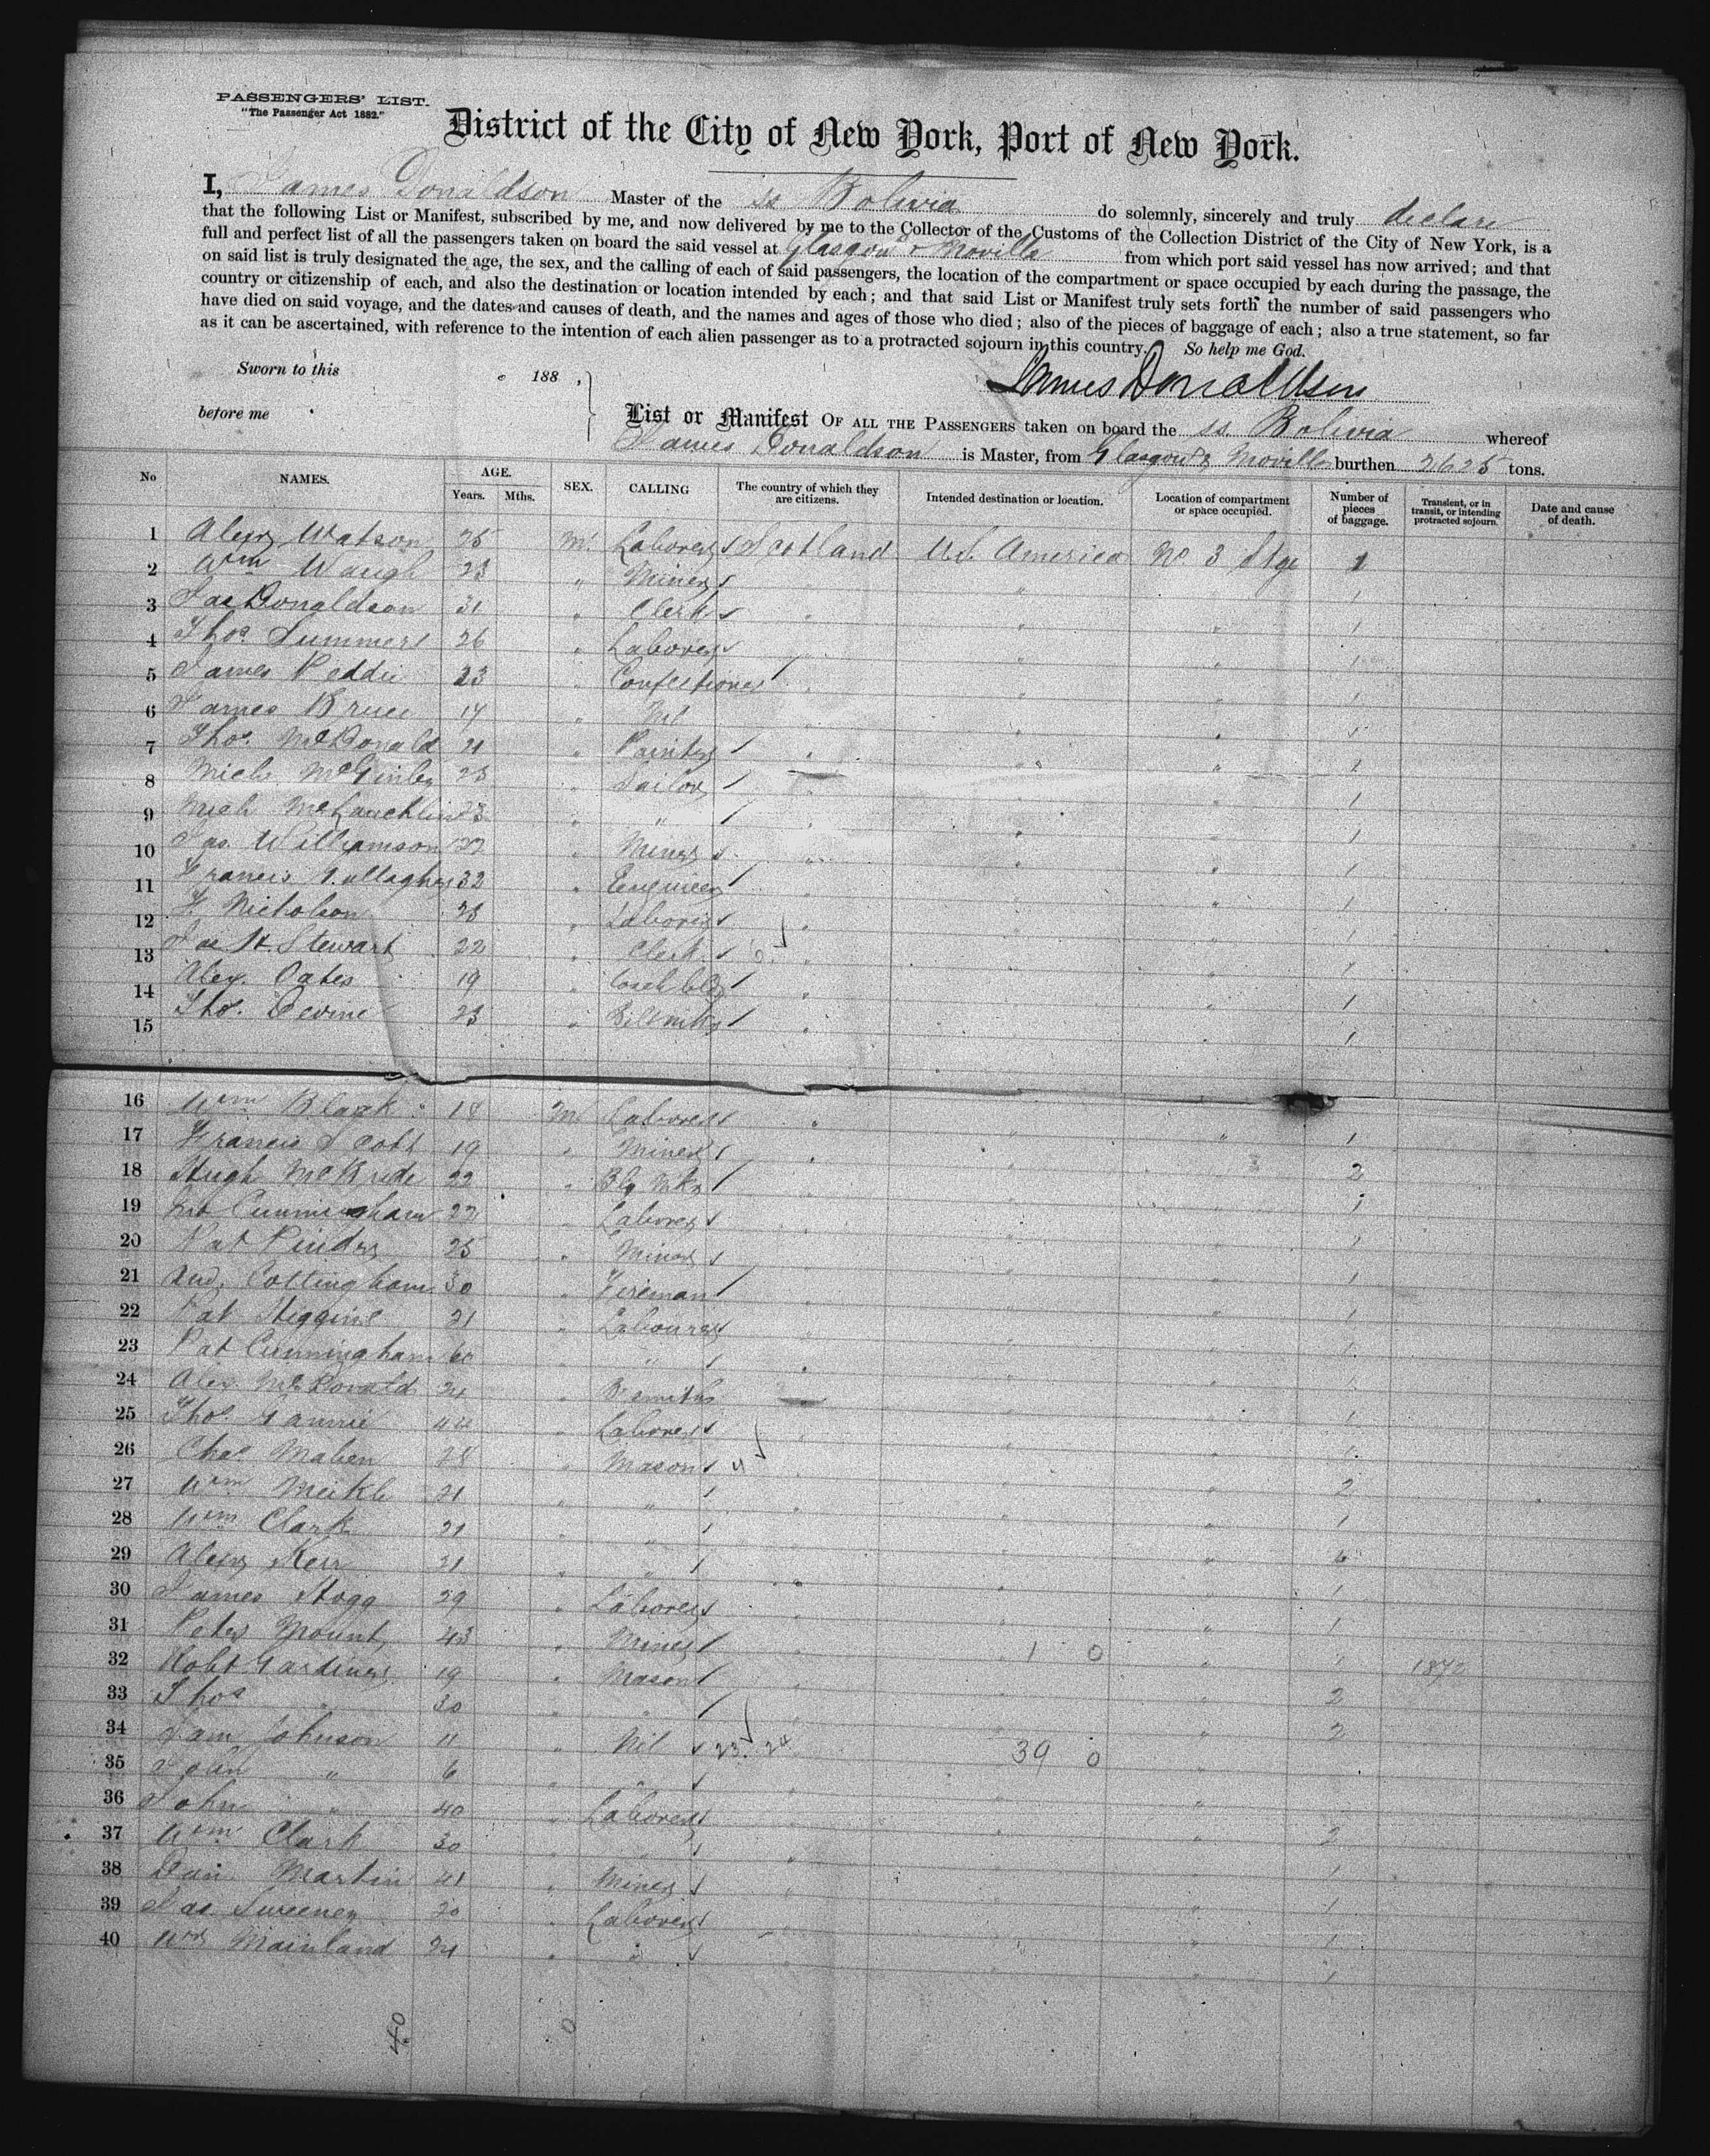 PASSENGERS' LIST.
"The Passenger Act 1882."
District of the City of New York, Port of New York.
I, James Donaldson Master of the ss Bolivia do solemnly, sincerely and truly declare
that the following List or Manifest, subscribed by me, and now delivered by me to the Collector of the Customs of the Collection District of the City of New York, is a
full and perfect list of all the passengers taken on board the said vessel at Glasgow & Moville from which port said vessel has now arrived; and that
on said list is truly designated the age, the sex, and the calling of each of said passengers, the location of the compartment or space occupied by each during the passage, the
country or citizenship of each, and also the destination or location intended by each; and that said List or Manifest truly sets forth the number of said passengers who
have died on said voyage, and the dates and causes of death, and the names and ages of those who died; also of the pieces of baggage of each; also a true statement, so far
as it can be ascertained, with reference to the intention of each alien passenger as to a protracted sojourn in this country. So help me God.
Sworn to this 188 ,
James Donaldson
before me
List or Manifest OF ALL THE PASSENGERS taken on board the ss. Bolivia whereof
James Donaldson is Master, from Glasgow & Moville burthen 2625 tons.
No NAMES. AGE. Years. Mths. SEX. CALLING The country of which they are citizens. Intended destination or location. Location of compartment or space occupied. Number of pieces of baggage. Transient, or in transit, or intending protracted sojourn. Date and cause of death.
1 Alexr Watson 25 M. Laborer Scotland U.S. America No. 3 Stge 1
2 Wm Waugh 23 " Miner " " " 1
3 Jas Donaldson 31 " Clerk " " " 1
4 Thos. Summers 26 " Laborer " " " 1
5 James Peddie 23 " Confectioner " " " 1
6 James Bruce 17 " Nil " " " 1
7 Thos. McDonald 21 " Painter " " " 1
8 Mich McGinley 23 " Sailor " " " 1
9 Mich McLauchlin 23 " " " " " 1
10 Jas. Williamson 22 " Miner " " " 1
11 Francis Gallagher 32 " Engineer " " " 1
12 F. Nicholson 28 " Laborer " " "
13 Jas H. Stewart 22 " Clerk " " " 1
14 Alex. Oates 19 " Coach bldr " " " 1
15 Thos. Devine 23 " " " " 1
16 Wm Black 18 M Laborer " " " 1
17 Francis Scott 19 " Miner " " " 2
18 Hugh McBride 22 " " " " 1
19 Cunningham 22 " Laborer " " " 1
20 Pat Pinder 25 " Miner " " " 1
21 And. Cottingham 30 " Fireman " " " 1
22 Pat Higgins 21 " Labourer " " " 1
23 Pat Cunningham 60 " " " " " 1
24 Alex. McDonald 24 " B smith " " " 1
25 Thos. Gannie 44 " Laborer " " " 1
26 Chas. Mahen 28 " Mason 4 " " " 2
27 Wm Meikle 21 " " " " " 1
28 Wm Clark 21 " " " " "
29 Alexr Kerr 21 " " " " " 1
30 James Hogg 29 " Laborer " " " 1
31 Peter Mount 43 " Miner " 1 0 " 1 1870
32 Robt Gardiner 19 " Mason " " " 2
33 Thos " 30 " " " " " 2
34 Sam Johnson 11 " Nil 23. 24 39 0 "
35 John " 6 " " " " "
36 John " 40 " Laborer " " " 2
37 Wm Clark 30 " " " " " 1
38 Dan. Martin 41 " Miner " " " 1
39 Jas. Sweeney 20 " Laborer " " " 1
40 Wm Mainland 24 " " " " " 1
40 0